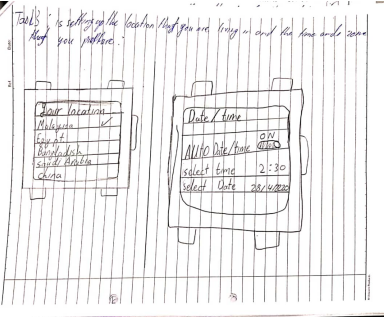 Task3: is setting up the location that you are living in and the time and zone
that you preffere:
Your location
Malaysia ✓
Egypt
Bangladish
Saudi Arabia
China
Date/time
ON
AUTO Date/time
select time 2:30
select Date 28/4/2020